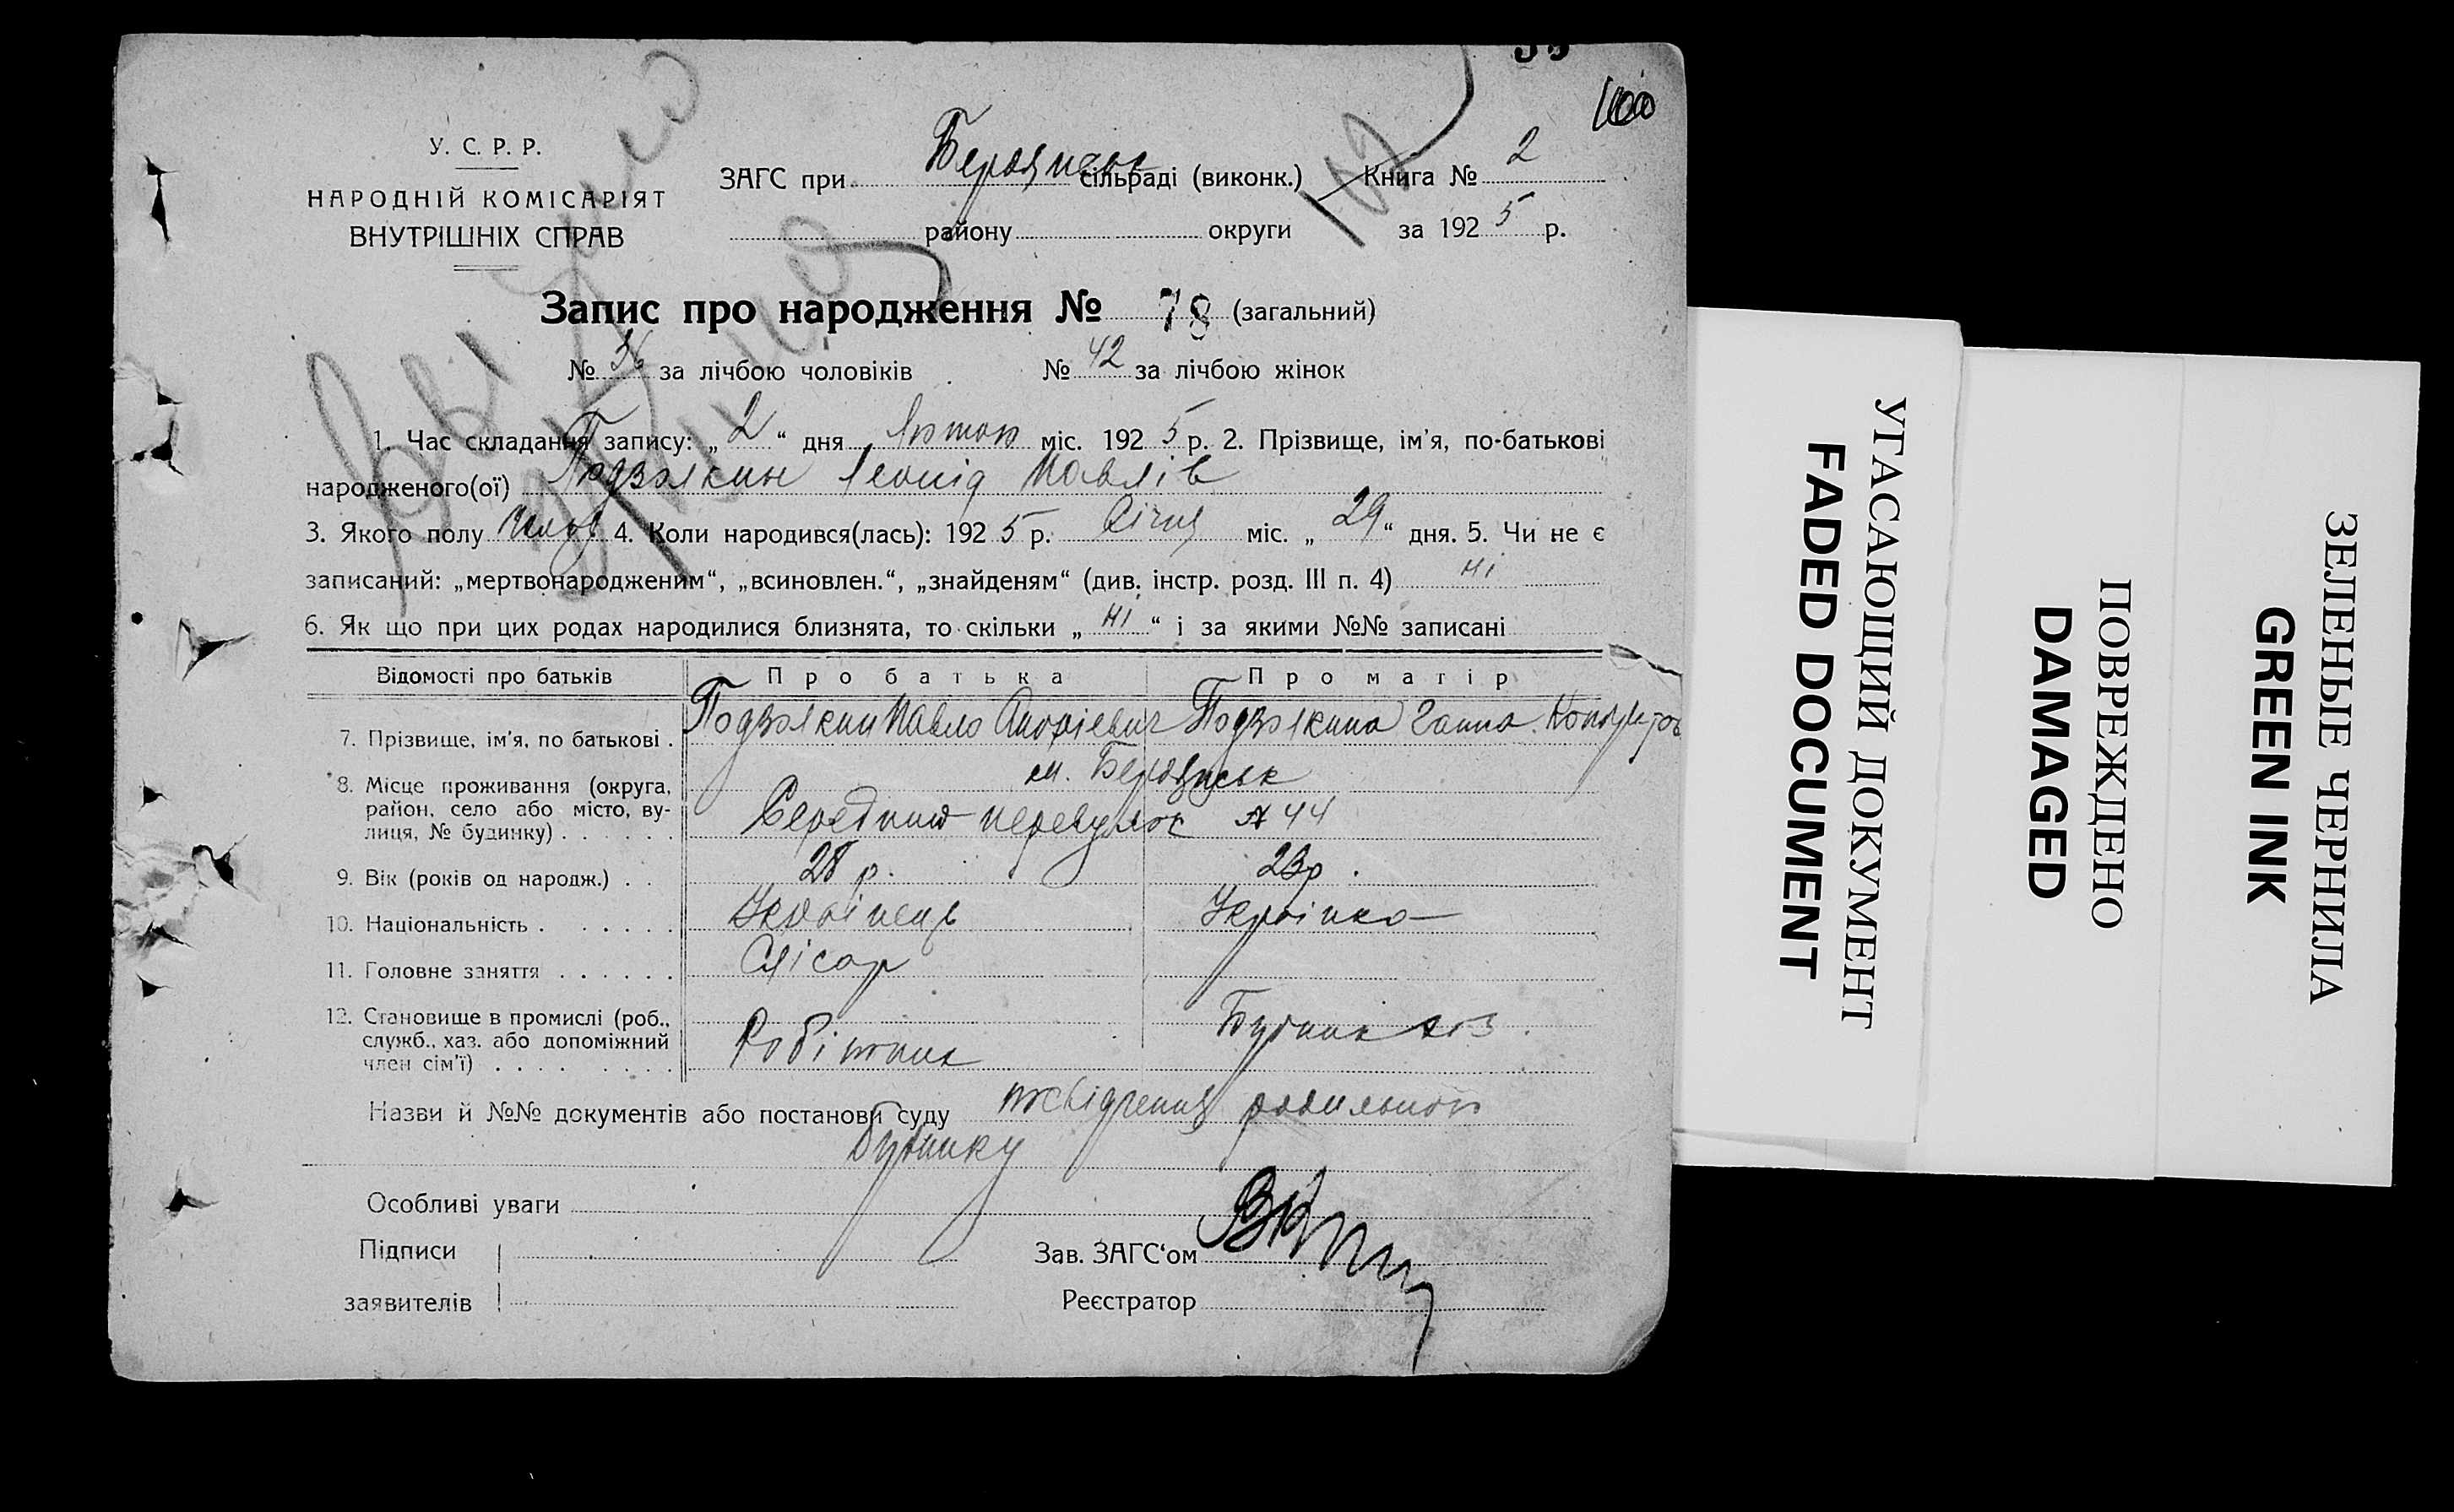 100
У. С. Р. Р.
НАРОДНІЙ КОМІСАРІЯТ
ВНУТРІШНІХ СПРАВ
ЗАГС при сільраді (виконк.) Книга № 2
району округи за 1925 р.
Запис про народження № 78 (загальний)
№ 36 за лічбою чоловіків № 42 за лічбою жінок
1. Час складання запису: „2“ дня Лютого міс. 1925 р. 2. Прізвище, ім'я, по-батькові
народженого(ої) Подзолкин Леонід Павлів
3. Якого полу Чолов 4. Коли народився(лась): 1925 р. Січня міс. „29“ дня. 5. Чи не є
записаний: „мертвонародженим“, „всиновлен.“, „знайденям“ (див. інстр. розд. III п. 4) ні
6. Як що при цих родах народилися близнята, то скільки „ні“ і за якими №№ записані
Відомості про батьків Про батька Про матір
7. Прізвище, ім'я, по батькові . Подзолкин Павло Подзолкина Ганна
8. Місце проживання (округа, район, село або місто, вулиця, № будинку) . . . . . . м.
перевулок № 44
9. Вік (років од народж.) . . 28 р. 23 р.
10. Національність . . . . . . Українець Українка
11. Головне заняття . . . . . . Слісар
12. Становище в промислі (роб., служб., хаз. або допоміжний член сім'ї) . . . . . . . . Робітник
Назви й №№ документів або постанови суду посвідчення родильного
будинку
Особливі уваги
Підписи
заявителів
Зав. ЗАГС‘ом
Реєстратор
УГАСАЮЩИЙ ДОКУМЕНТ
FADED DOCUMENT
ПОВРЕЖДЕНО
DAMAGED
ЗЕЛЕНЫЕ ЧЕРНИЛА
GREEN INK